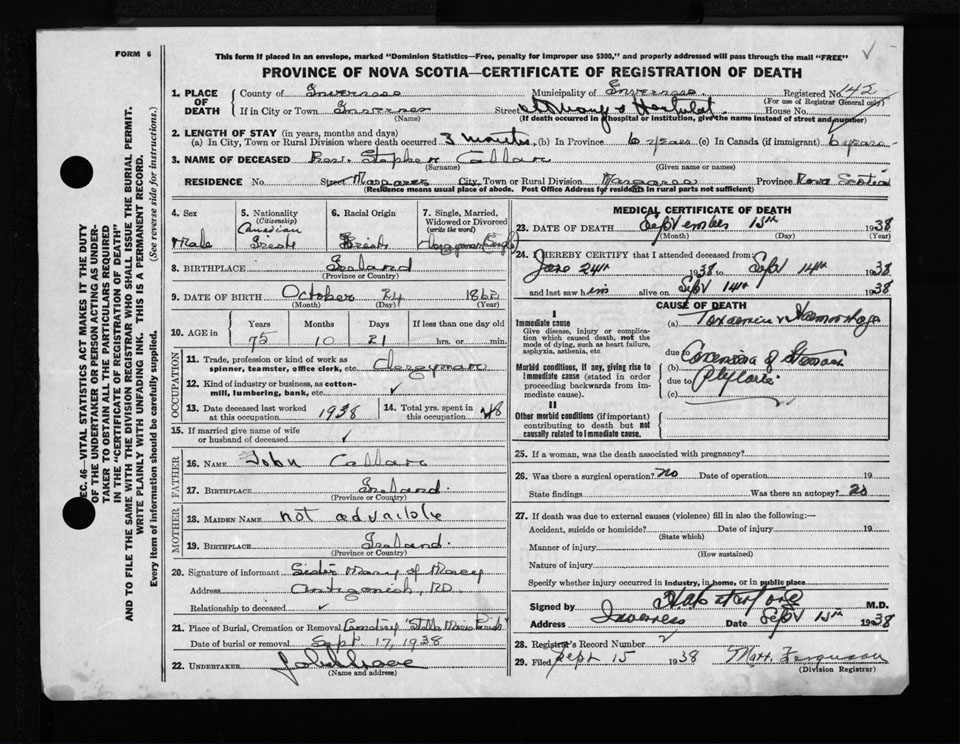 FORM 6
This form if placed in an envelope, marked "Dominion Statistics—Free, penalty for improper use $300," and properly addressed will pass through the mail "FREE"
PROVINCE OF NOVA SCOTIA—CERTIFICATE OF REGISTRATION OF DEATH
1. PLACE OF DEATH
County of Inverness Municipality of Inverness Registered No. 142
(For use of Registrar General only)
If in City or Town Inverness Street St Mary's Hospital House No.
(Name) (If death occurred in hospital or institution, give the name instead of street and number)
2. LENGTH OF STAY (in years, months and days)
(a) In City, Town or Rural Division where death occurred 3 months (b) In Province 6 years (c) In Canada (if immigrant) 6 years
3. NAME OF DECEASED Rev. Stephen
(Surname) (Given name or names)
RESIDENCE No. Street Margaree City, Town or Rural Division Margaree Province Nova Scotia
(Residence means usual place of abode. Post Office Address for residents in rural parts not sufficient)
4. Sex
Male
5. Nationality
(Citizenship)
Canadian
Irish
6. Racial Origin
Irish
7. Single, Married, Widowed or Divorced
(write the word)
Clergyman (Single)
8. BIRTHPLACE Ireland
(Province or Country)
9. DATE OF BIRTH October 24
(Month) (Day) (Year)
10. AGE in Years Months Days If less than one day old
75 10 21 hrs. or min.
OCCUPATION
11. Trade, profession or kind of work as spinner, teamster, office clerk, etc. Clergyman
12. Kind of industry or business, as cotton-mill, lumbering, bank, etc. ✓
13. Date deceased last worked at this occupation 1938
14. Total yrs. spent in this occupation 48
15. If married give name of wife or husband of deceased ✓
FATHER
16. NAME John
17. BIRTHPLACE Ireland
(Province or Country)
MOTHER
18. MAIDEN NAME not advailble
19. BIRTHPLACE Ireland
(Province or Country)
20. Signature of informant Sister Mary of Mercy
Address Antigonish, RD.
Relationship to deceased ✓
21. Place of Burial, Cremation or Removal Cemetery "Stella Maris Parish"
Date of burial or removal Sept 17, 1938
22. UNDERTAKER
(Name and address)
MEDICAL CERTIFICATE OF DEATH
23. DATE OF DEATH September 15th 1938
(Month) (Day) (Year)
24. I HEREBY CERTIFY that I attended deceased from:
June 24th 1938 to Sept 14th 1938
and last saw him alive on Sept 14th 1938
CAUSE OF DEATH
I
Immediate cause
Give disease, injury or complication which caused death, not the mode of dying, such as heart failure, asphyxia, asthenia, etc.
(a) Toxaemia & Hemorrhage
due to
Morbid conditions, if any, giving rise to immediate cause (stated in order proceeding backwards from immediate cause).
(b) Carcinoma of Stomach
due to
(c)
II
Other morbid conditions (if important) contributing to death but not causally related to immediate cause.
25. If a woman, was the death associated with pregnancy?
26. Was there a surgical operation? no Date of operation 19
State findings Was there an autopsy? no
27. If death was due to external causes (violence) fill in also the following:—
Accident, suicide or homicide? Date of injury 19
(State which)
Manner of injury
(How sustained)
Nature of injury
Specify whether injury occurred in industry, in home, or in public place
Signed by M.D.
Address Inverness Date Sept 15th 1938
28. Registrar's Record Number
29. Filed Sept 15 1938 Matt. Ferguson
(Division Registrar)
SEC. 46—VITAL STATISTICS ACT MAKES IT THE DUTY
OF THE UNDERTAKER OR PERSON ACTING AS UNDER-
TAKER TO OBTAIN ALL THE PARTICULARS REQUIRED
IN THE "CERTIFICATE OF REGISTRATION OF DEATH"
AND TO FILE THE SAME WITH THE DIVISION REGISTRAR WHO SHALL ISSUE THE BURIAL PERMIT.
WRITE PLAINLY WITH UNFADING INK. THIS IS A PERMANENT RECORD.
Every item of information should be carefully supplied. (See reverse side for instructions.)